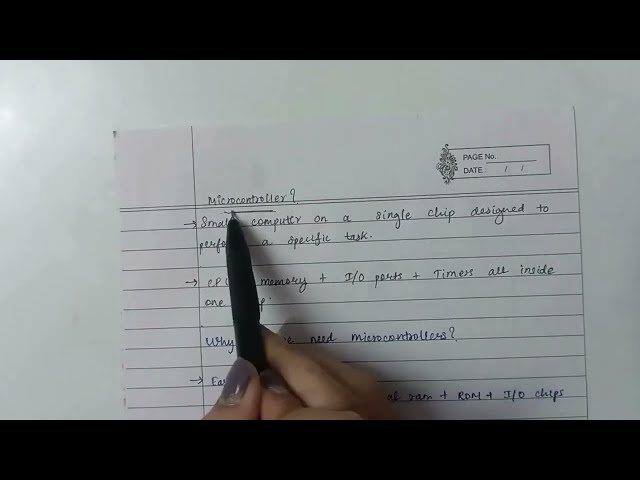 PAGE No.
DATE: / /
Microcontroller?
→ Small computer on a single chip designed to
a specific task.
→ memory + I/O ports + Timers all inside
one
Why need microcontrollers?
→ ram + ROM + I/O chips